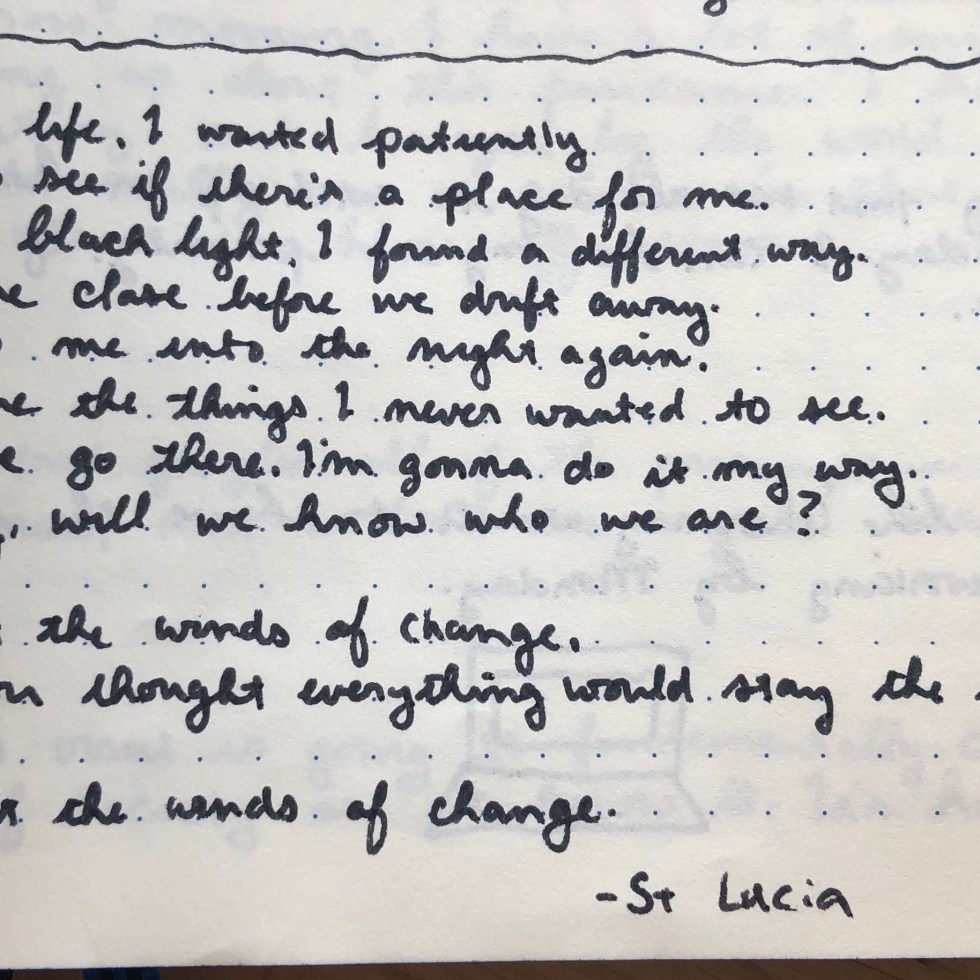 life, I waited patiently
see if there's a place for me.
black light, I found a different way.
close before we drift away.
me into the night again.
the things I never wanted to see.
go there. I'm gonna do it my way.
will we know who we are?
the winds of change.
thought everything would stay the
the winds of change.
-St Lucia